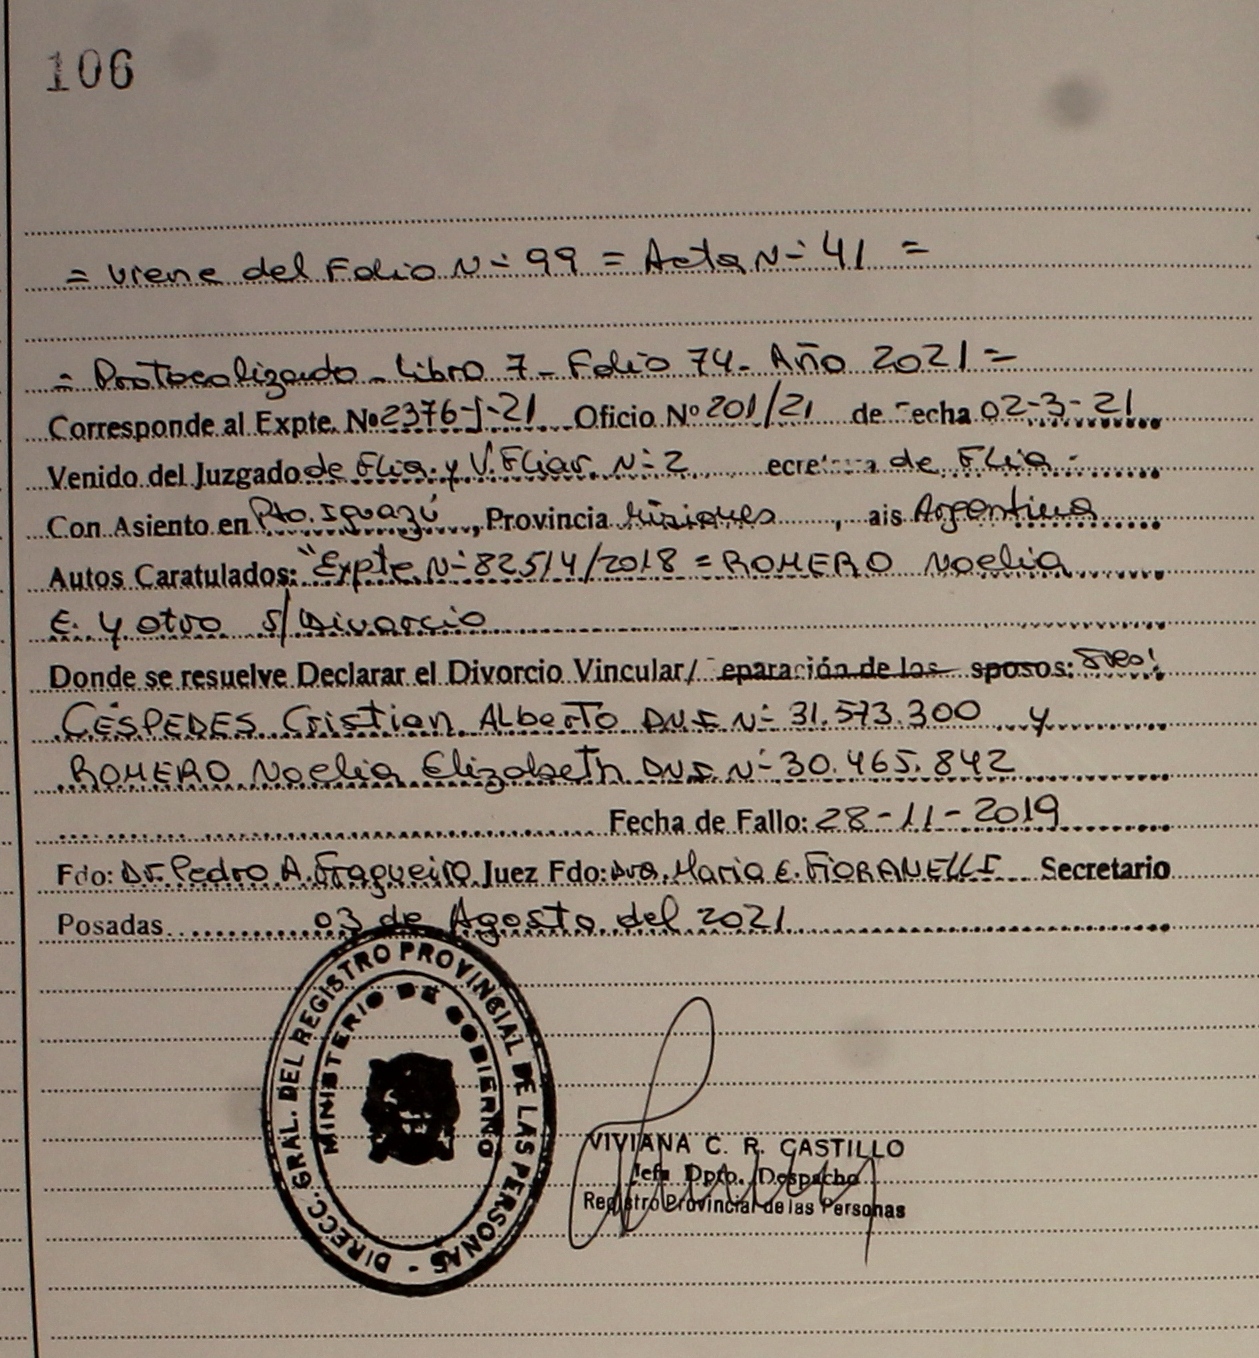 106
= Viene del Folio N- 99 = Acta N- 41 =
= Protocolizado - Libro 7 - Folio 74 - Año 2021 =
Corresponde al Expte. Nº 2376-J-21 Oficio Nº 201/21 de echa 02-3-21
Venido del Juzgado de Flia. y V. Fliar. N- 2 ecre a de Flia -
Con Asiento en Pto. Iguazú, Provincia Misiones, ais Argentina
Autos Caratulados: "Expte. N- 82514/2018 = ROMERO Noelia
E. y otro s/ Divorcio
Donde se resuelve Declarar el Divorcio Vincular/ eparación de los sposos:
CÉSPEDES Cristian Alberto D.N.I. N- 31.573.300 y
ROMERO Noelia Elizabeth D.N.I. N- 30.465.842
Fecha de Fallo: 28-11-2019
Fdo: Dr. Pedro A. Fragueiro Juez Fdo: Dra. Maria E. FIORANELLI Secretario
Posadas 03 de Agosto del 2021
DIRECC. GRAL. DEL REGISTRO PROVINCIAL DE LAS PERSONAS -
MINISTERIO DE GOBIERNO
VIVIANA C. R. CASTILLO
Jefa Dpto. Despacho
Registro Provincial de las Personas